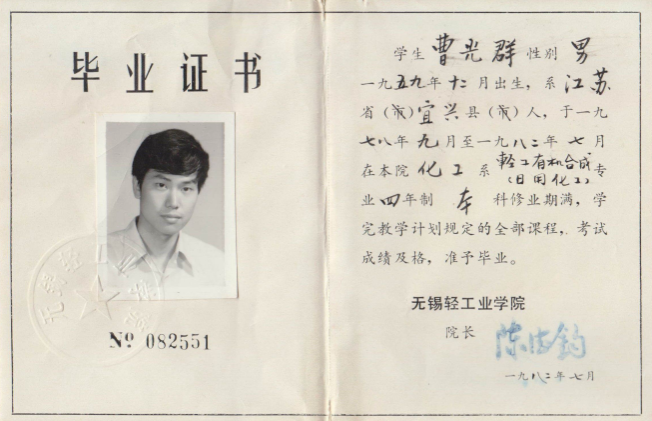 毕业证书
无锡轻工业学院
№ 082551
学生 曹光群 性别 男
一九五九年十二月出生，系 江苏
省(市)宜兴县(市)人，于一九
七八年九月至一九八二年七月
在本院 化工 系 輕工有机合成(日用化工) 专
业四年制 本 科修业期满，学
完教学计划规定的全部课程，考试
成绩及格，准予毕业。
无锡轻工业学院
院长
一九八二年七月